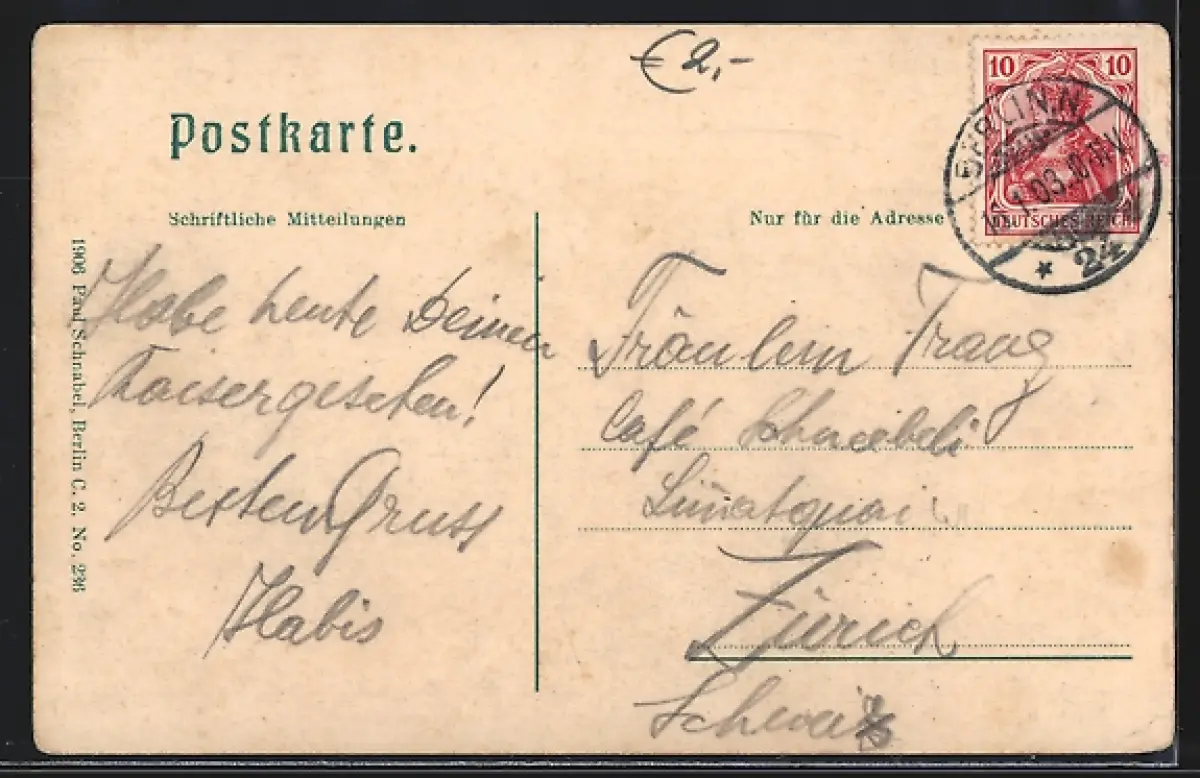 € 2,-
Postkarte.
10 10
BERLIN.N.
1.03
DEUTSCHES REICH
* 24
Schriftliche Mitteilungen
Nur für die Adresse
Habe heute Deinen
Kaiser gesehen!
Besten Gruss
Habis
Fräulein
Café
Limatquai
Zürich
Schweiz
1906 Paul Schnabel, Berlin C. 2. No. 236